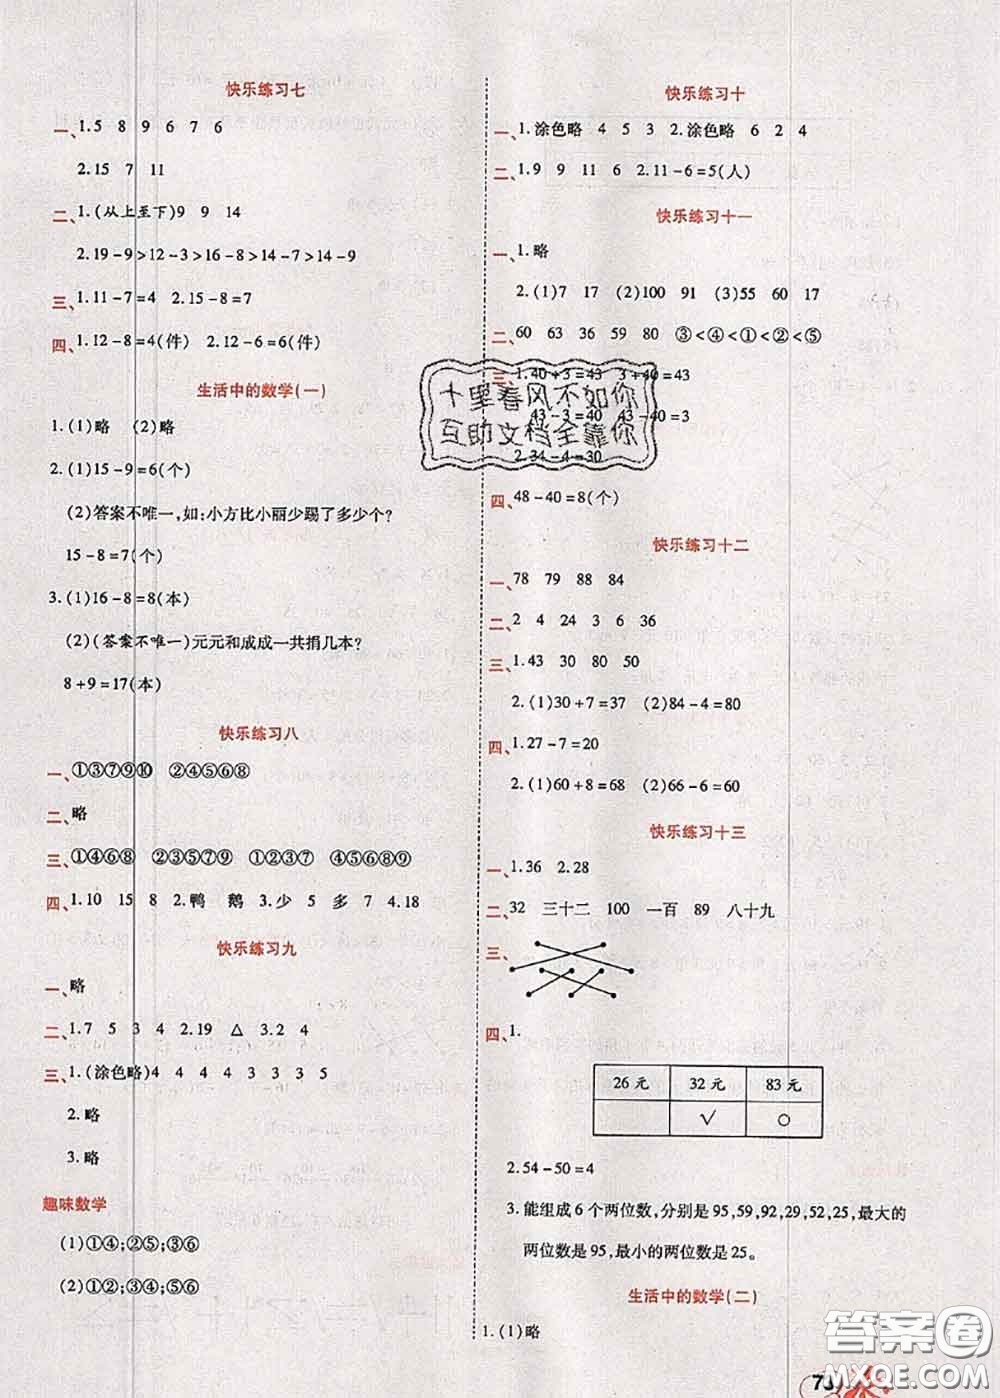 快乐练习七
一、1.5 8 9 6 7 6
2.15 7 11
二、1.(从上至下)9 9 14
2.19-9>12-3>16-8>14-7>14-9
三、1.11-7=4 2.15-8=7
四、1.12-8=4(件) 2.12-6=6(件)
生活中的数学(一)
1.(1)略 (2)略
2.(1)15-9=6(个)
(2)答案不唯一,如:小方比小丽少踢了多少个?
15-8=7(个)
3.(1)16-8=8(本)
(2)(答案不唯一)元元和成成一共捐几本?
8+9=17(本)
快乐练习八
一、①③⑦⑨⑩ ②④⑤⑥⑧
二、略
三、①④⑥⑧ ②③⑤⑦⑨ ①②③⑦ ④⑤⑥⑧⑨
四、1.10 15 8 2.鸭 鹅 3.少 5 多 7 4.18
快乐练习九
一、略
二、1.7 5 3 4 2.19 △ 3.2 4
三、1.(涂色略)4 4 4 4 3 3 3 5
2.略
3.略
趣味数学
(1)①④;②⑤;③⑥
(2)①②;③④;⑤⑥
快乐练习十
一、1.涂色略 4 5 3 2.涂色略 6 2 4
二、1.9 9 11 6 2.11-6=5(人)
快乐练习十一
一、1.略
2.(1)7 17 (2)100 91 (3)55 60 17
二、60 63 36 59 80 ③<④<①<②<⑤
三、1.40+3=43 3+40=43
43-3=40 43-40=3
2.34-4=30
十里春风不如你
互助文档全靠你
四、48-40=8(个)
快乐练习十二
一、78 79 88 84
二、2 4 24 3 6 36
三、1.43 30 80 50
2.(1)30+7=37 (2)84-4=80
四、1.27-7=20
2.(1)60+8=68 (2)66-6=60
快乐练习十三
一、1.36 2.28
二、32 三十二 100 一百 89 八十九
三、
四、1.
26元 32元 83元
√ ○
2.54-50=4
3.能组成6个两位数,分别是95,59,92,29,52,25,最大的
两位数是95,最小的两位数是25。
生活中的数学(二)
1.(1)略
答案圈
MXQE.COM